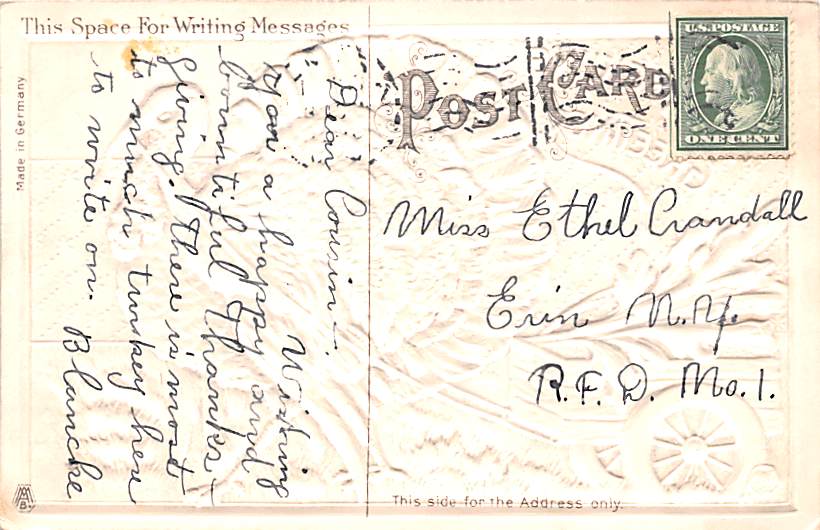 This Space For Writing Messages
Made in Germany
POST CARD
U.S. POSTAGE
ONE CENT
Dear Cousin—.
Wishing
you a happy and
bountiful Thanks-
giving. There is most
to much turkey here
to write on. Blanche
Miss Ethel Crandall
Erin N.Y.
R.F.D. No.1.
This side for the Address only.